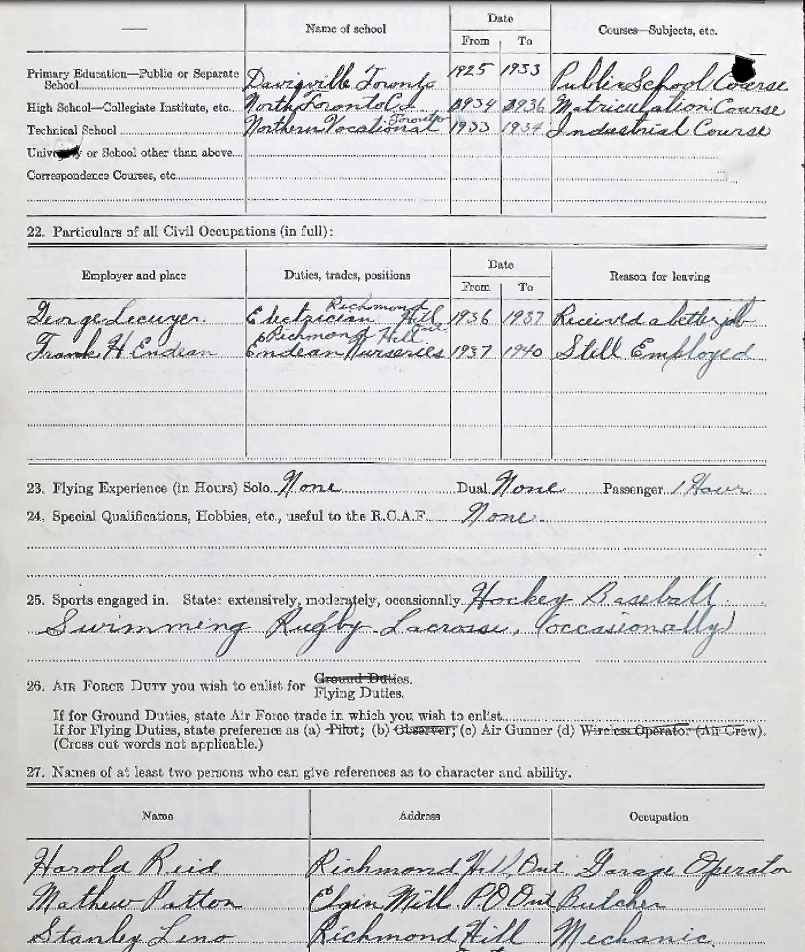 — Name of school Date Courses—Subjects, etc.
From To
Primary Education—Public or Separate School Davisville Toronto 1925 1933 Public School Course
High School—Collegiate Institute, etc. North Toronto C.I. 1934 1936 Matriculation Course
Technical School Northern Vocational Toronto 1933 1934 Industrial Course
University or School other than above
Correspondence Courses, etc
22. Particulars of all Civil Occupations (in full):
Employer and place Duties, trades, positions Date Reason for leaving
From To
George Lecuyer Electrician Richmond Hill 1936 1937 Received a better job
Frank H Endean Endean Nurseries Richmond Hill Ont. 1937 1940 Still Employed
23. Flying Experience (in Hours) Solo None Dual None Passenger 1 Hour
24. Special Qualifications, Hobbies, etc., useful to the R.C.A.F. None
25. Sports engaged in. State: extensively, moderately, occasionally. Hockey Baseball
Swimming Rugby Lacrosse, (occasionally)
26. AIR FORCE DUTY you wish to enlist for Ground Duties.
Flying Duties.
If for Ground Duties, state Air Force trade in which you wish to enlist
If for Flying Duties, state preference as (a) Pilot; (b) Observer; (c) Air Gunner (d) Wireless Operator (Air Crew).
(Cross out words not applicable.)
27. Names of at least two persons who can give references as to character and ability.
Name Address Occupation
Harold Reid Richmond Hill, Ont Garage Operator
Mathew Patton Elgin Mill P.O Ont Butcher
Stanley Leno Richmond Hill Mechanic